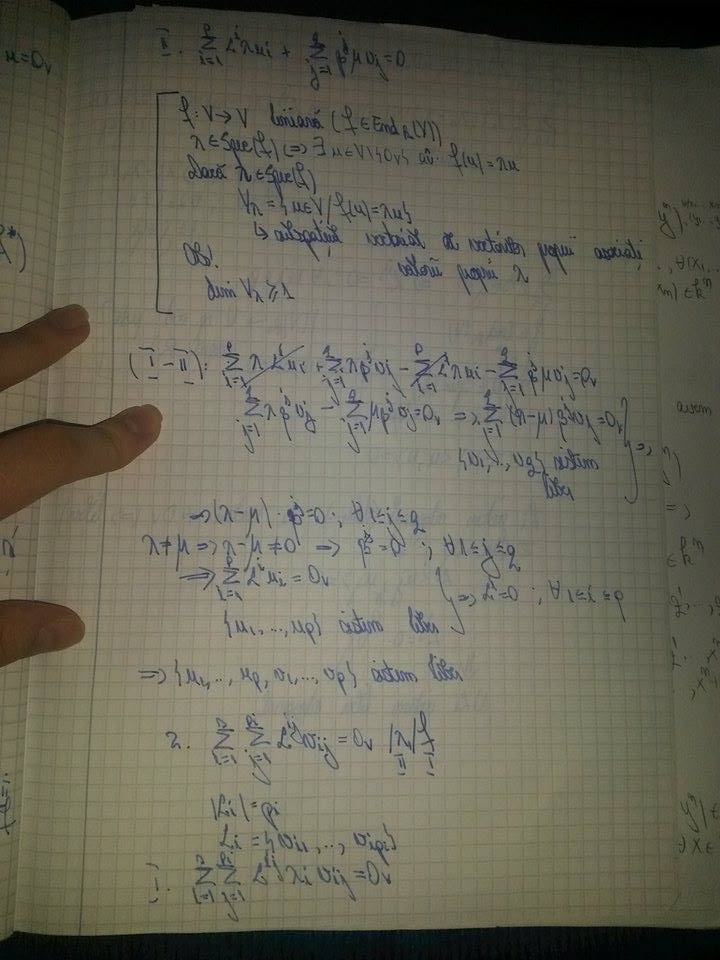 II. ∑_{i=1}^{p} α^i λ u_i + ∑_{j=1}^{q} β^j μ v_j = 0
f: V → V liniară (f ∈ End_k(V))
λ ∈ Spec(f) (=> ∃ u ∈ V\{0_v} aî. f(u) = λu
Dacă λ ∈ Spec(f)
V_λ = {u ∈ V / f(u) = λu}
↳ subspațiul vectorial al vectorilor proprii asociați
Obs! valorii proprii λ
dim V_λ ≥ 1
(I - II): ∑_{i=1}^{p} λ α^i u_i + ∑_{j=1}^{q} λ β^j v_j - ∑_{i=1}^{p} α^i λ u_i - ∑_{j=1}^{q} β^j μ v_j = 0_v
∑_{j=1}^{q} λ β^j v_j - ∑_{j=1}^{q} μ β^j v_j = 0_v => ∑_{j=1}^{q} (λ-μ) β^j v_j = 0_v } =>
{v_1, .., v_q} sistem
liber
=> (λ-μ) · β^j = 0 ; ∀ 1≤j≤q
λ ≠ μ => λ-μ ≠ 0 => β^j = 0 ; ∀ 1≤j≤q
=> ∑_{i=1}^{p} α^i u_i = 0_v } => α^i = 0 ; ∀ 1≤i≤p
{u_1, ..., u_p} sistem liber
=> {u_1, .., u_p, v_1, .., v_p} sistem liber
2. ∑_{i=1}^{r} ∑_{j=1}^{p_i} α^{ij} v_{ij} = 0_v |λ| f
II I
|L_i| = p_i
L_i = {v_{i1}, .., v_{ip_i}}
I. ∑_{i=1}^{r} ∑_{j=1}^{p_i} α^{ij} λ_i v_{ij} = 0_v
u = 0_v
avem